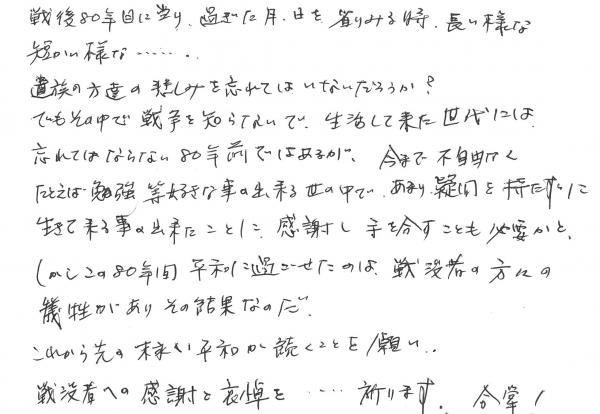 戦後80年目に当り、過ぎた月、日を省りみる時、長い様な
短かい様な‥‥‥.
遺族の方達の悲しみを忘れてはいないだろうか?
でもその中で戦争を知らないで、生活して来た世代には、
忘れてはならない80年前ではあるが、今まで不自由なく
たとえば勉強等好きな事の出来る世の中で、あまり疑問を持たずに
生きて来る事の出来たことに、感謝し手を合すことも必要かと、
しかしこの80年間平和に過ごせたのは、戦没者の方々の
犠牲がありその結果なのだ、
これから先の末永い平和が続くことを願い‥
戦没者への感謝と哀悼を‥‥‥祈ります。合掌!